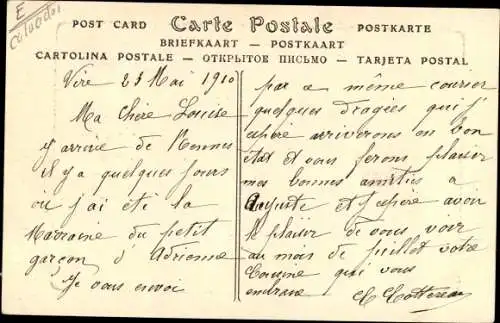 E
Calvados
POST CARD Carte Postale POSTKARTE
BRIEFKAART — POSTKAART
CARTOLINA POSTALE — ОТКРЫТОЕ ПИСЬМО — TARJETA POSTAL
Vire 23 Mai 1910
Ma Chère Louise
y arrive de Rennes
il y a quelques jours
ou j'ai été la
Marraine du petit
garçon d'Adrienne
Je vous envoi
par a même courier
quelques dragées qui j'
espère arriverons en bon
état et vous ferons plaisir
mes bonnes amitiés a
Auguste et j'espère avoir
le plaisir de vous voir
au mois de juillet votre
Cousine qui vous
embrasse